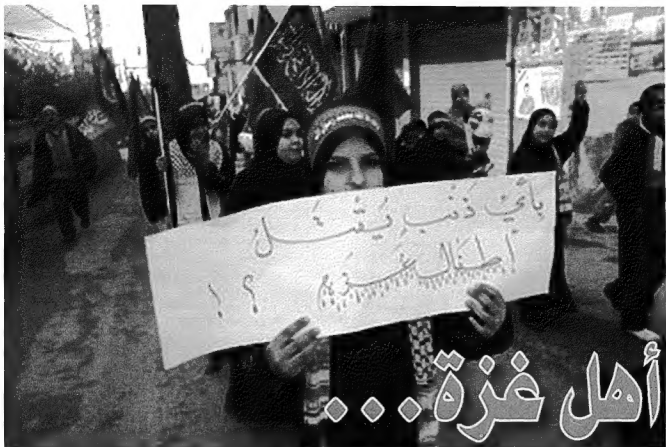 بأيّ ذَنْبٍ يُقْتَلُ
أطفال غزة ؟!
أهل غزة...